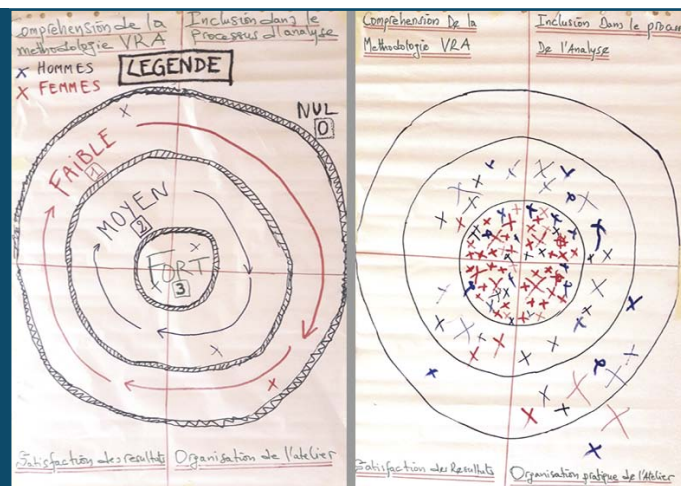 Compréhension de la
methodologie VRA
Inclusion dans le
Processus d'analyse
X HOMMES
X FEMMES
LEGENDE
NUL
0
FAIBLE
1
MOYEN
2
FORT
3
Satisfaction des resultats
Organisation de l'atelier
Compréhension De la
Methodologie VRA
Inclusion Dans le proces
De l'Analyse
Satisfaction des Resultats
Organisation pratique de l'Atelier